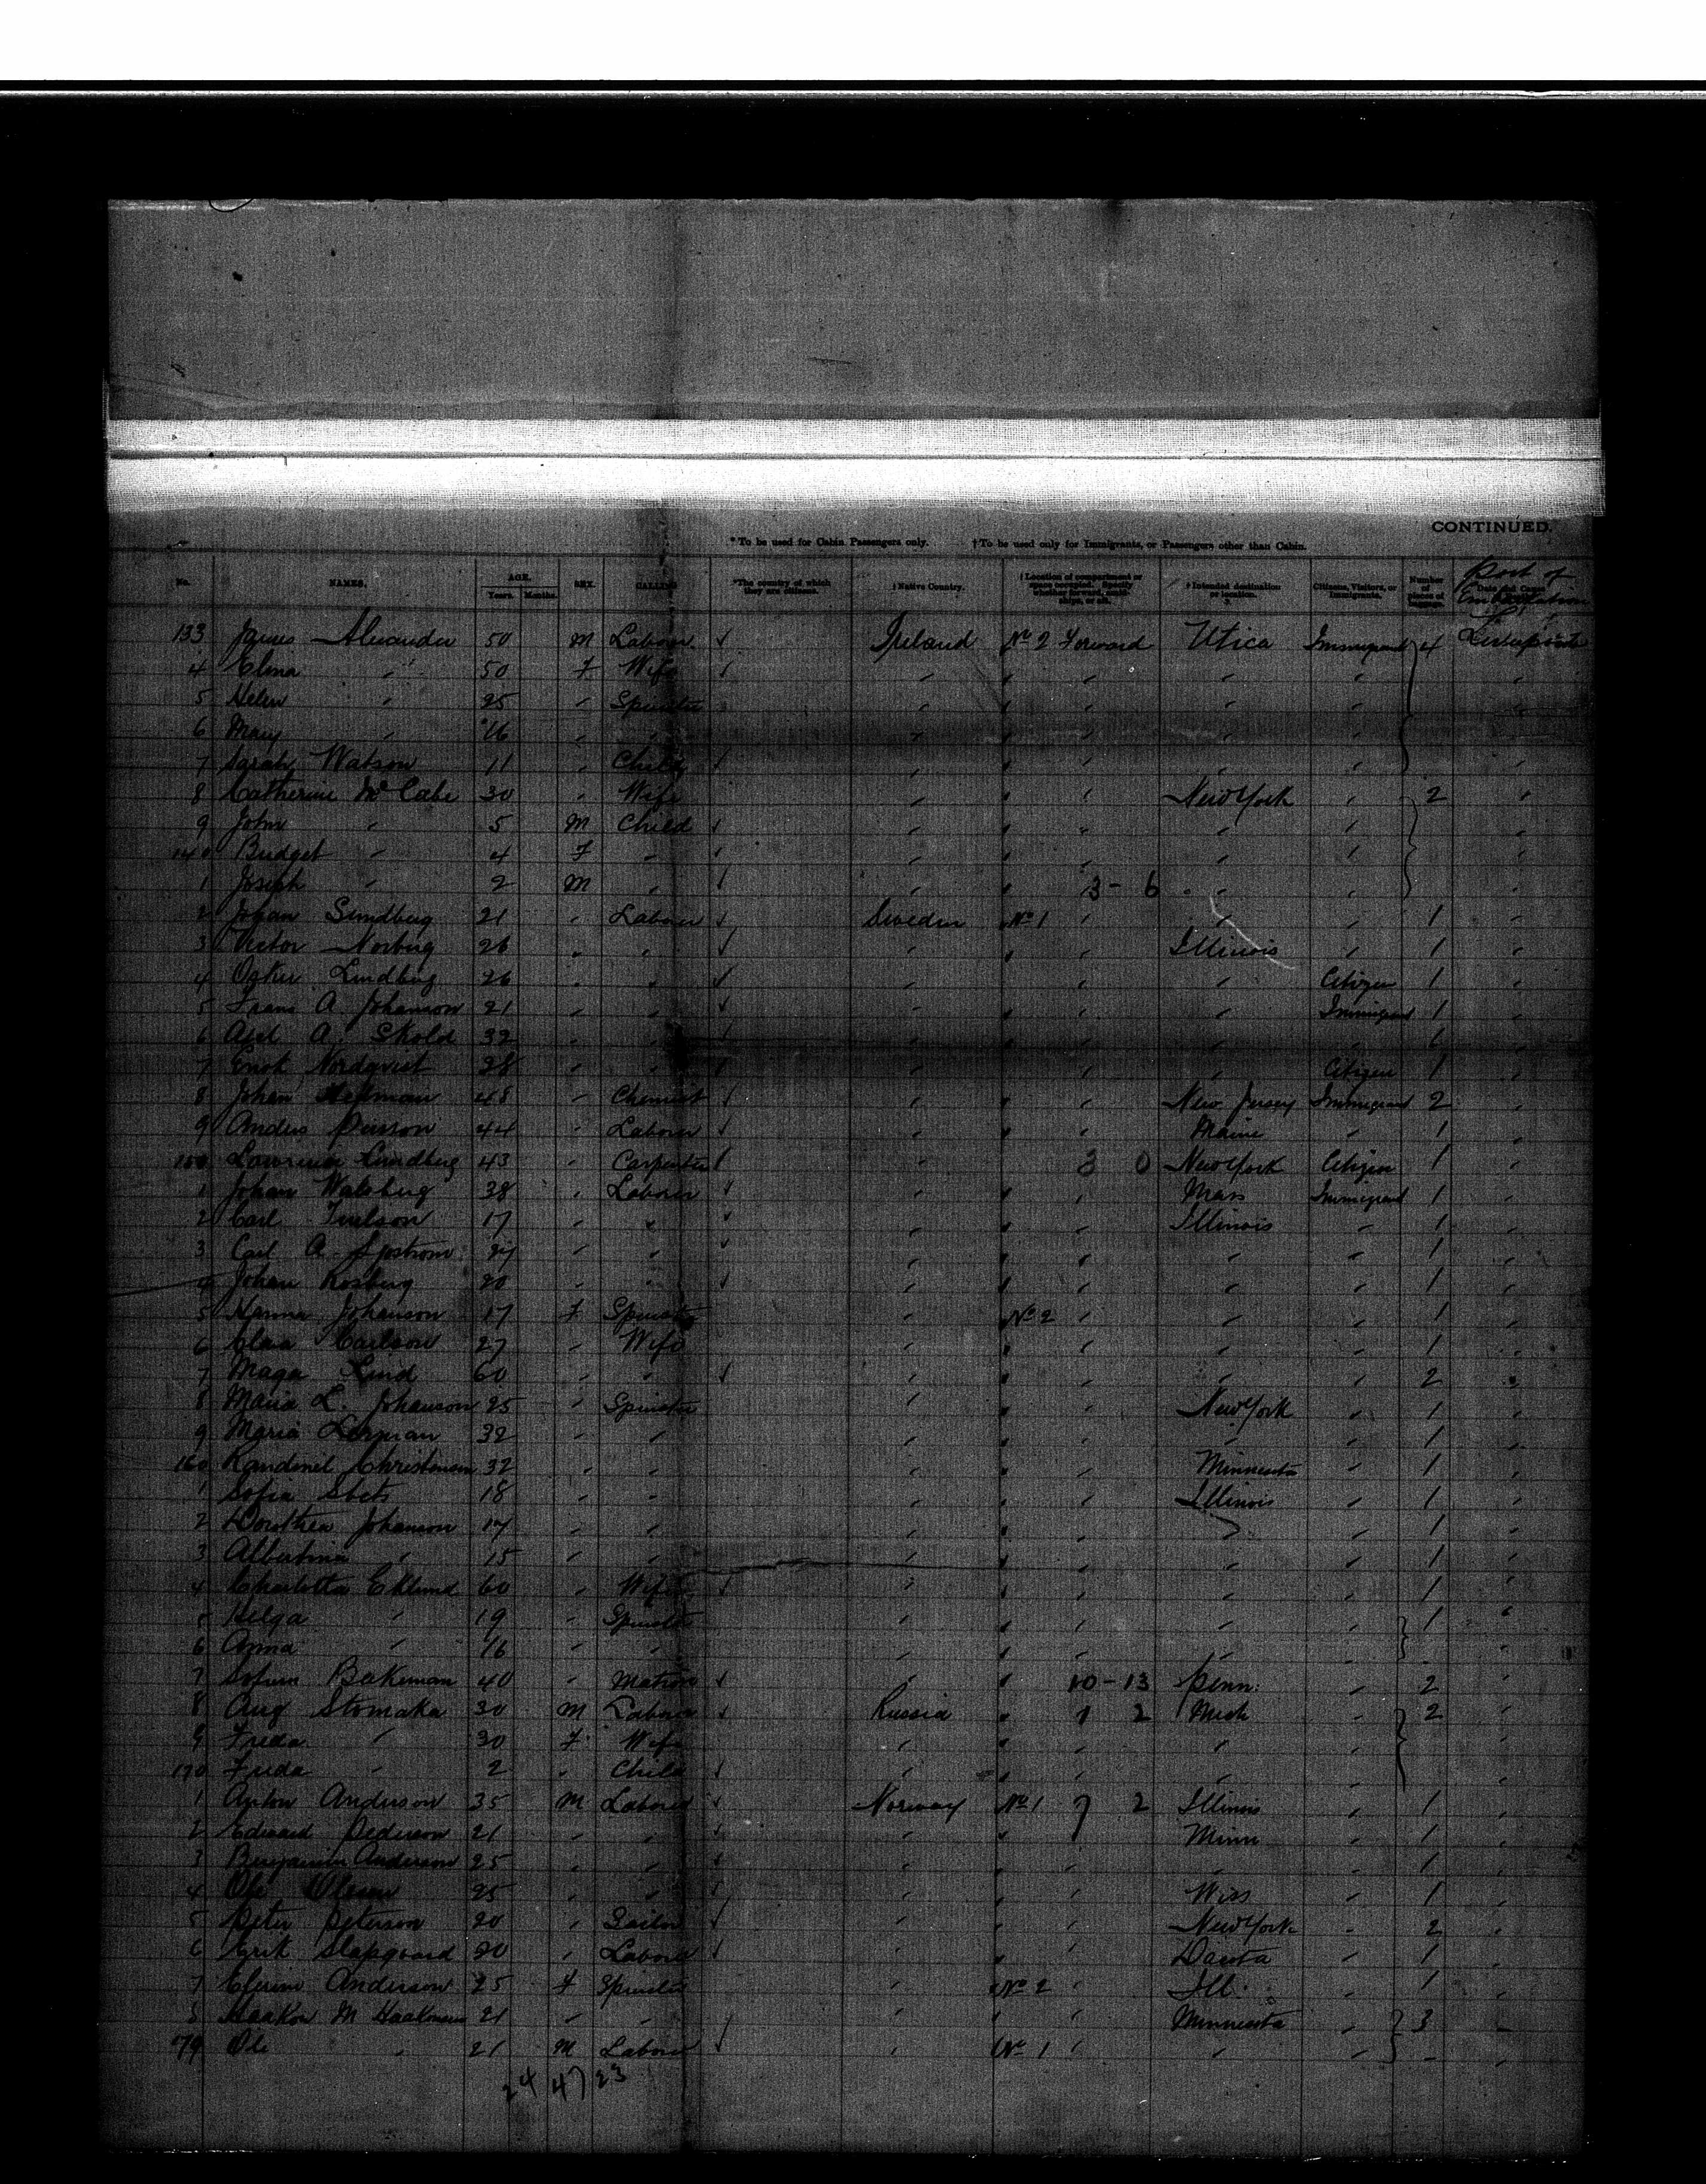 CONTINUED.
* To be used for Cabin Passengers only. † To be used only for Immigrants, or Passengers other than Cabin.
No. NAMES. AGE. Years. Months. SEX. CALLING *The country of which they are citizens. †Native Country. †Location of compartment or space occupied. Specify whether forward, amidships, or aft. †Intended destination or location. Citizens, Visitors, or Immigrants. Number of pieces of baggage. Port of Embarkation
133 James Alexander 50 M Labour Ireland No 2 Forward Utica Immigrant 4
4 Elma " 50 F Wife
5 Helen " 25 " Spinster
6 Mary " 16
7 Sarah Watson 11 " Child
8 Catherine McCabe 30 " Wife New York " 2
9 John " 5 M Child
140 Bridget " 4 F "
1 Joseph " 2 M " 3 - 6
2 Johan Sundberg 21 " Labour Sweden No 1 1
3 Victor Norberg 26 " " Illinois 1
4 Oskar Lindberg 26 " " Citizen 1
5 Frans A Johanson 21 " " Immigrant 1
6 Axel A. Skold 32
7 Enok Nordqvist 28 Citizen 1
8 Johan 48 " Chemist New Jersey Immigrant 2
9 Andus Persson 44 " Labour Maine " 1
150 Lawrence Lundberg 43 " Carpenter 3 0 New York Citizen 1
1 Johan Walsberg 38 " Labour Mass Immigrant 1
2 Carl 17 " " Illinois " 1
3 Carl A Sjostrom " " 1
4 Johan Rosberg 20 " " 1
5 Hanna Johanson 17 F Spinster No 2 1
6 Clara Carlson 27 " Wife 1
7 Maga Lind 60 " " 2
8 Maria L. Johanson 25 Spinster New York " 1
9 Maria 32 " " 1
160 Christensen 32 " " Minnesota " 1
1 Sofia 18 " " Illinois " 1
2 Dorothea Johanson 17 " " 1
3 Albertina " 15 " " 1
4 Charlotta Eklund 60 " Wife 1
5 Helga " 19 " Spinster 1
6 Anna " 16 "
7 Bakeman 40 " Matron 10 - 13 Penn. " 2
8 Aug Stomaka 30 M Labour Russia " 1 2 Mich 2
9 Freda " 30 F Wife
170 Freda " 2 " Child
1 Anton Anderson 35 M Labour Norway No 1 7 2 Illinois " 1
2 Edward Pederson 21 " " Minn " 1
3 Benjamin Anderson 25 " " 1
4 Ole Olson 25 " " Wiss " 1
5 Peter Peterson 20 " Sailor New York " 2
6 Erik Slapgaard 20 " Labour Dacota " 1
7 Anderson 25 F Spinster No 2 Ill. " 1
8 Haakon M 21 " " Minnesota " 3
179 Ole " 21 M Labour No 1
24 47 23